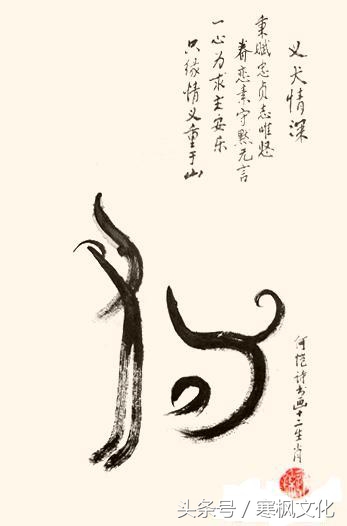 义犬情深
秉赋忠贞志唯坚
眷恋素守默无言
一心为求主安乐
只缘情义重于山
狗
何恺诗书画十二生肖
头条号/寒枫文化